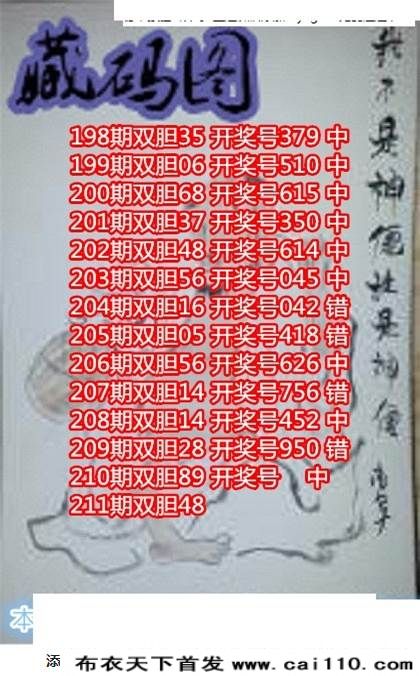 藏码图
我不是神但比是神准
198期双胆35 开奖号379 中
199期双胆06 开奖号510 中
200期双胆68 开奖号615 中
201期双胆37 开奖号350 中
202期双胆48 开奖号614 中
203期双胆56 开奖号045 中
204期双胆16 开奖号042 错
205期双胆05 开奖号418 错
206期双胆56 开奖号626 中
207期双胆14 开奖号756 错
208期双胆14 开奖号452 中
209期双胆28 开奖号950 错
210期双胆89 开奖号 中
211期双胆48
本
添
布衣天下首发 www.cai110.com